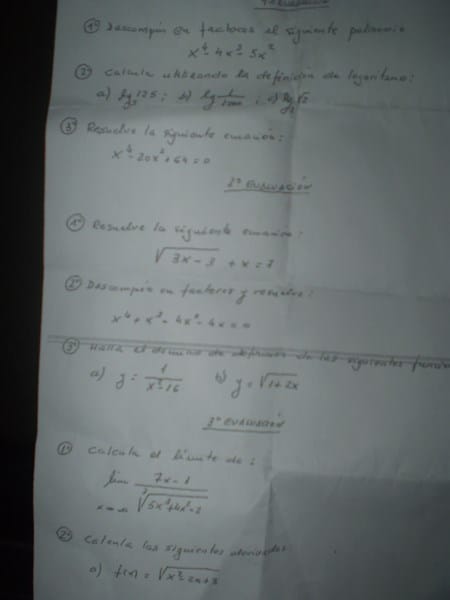 1º Descompón en factores el siguiente polinomio
x⁴ - 4x³ - 5x²
2º Calcula utilizando la definición de logaritmo:
a) lg₅ 125 ; b) lg 1/1000 ; c) lg₂ √2
3º Resuelve la siguiente ecuación:
x⁴ - 20x² + 64 = 0
2ª EVALUACIÓN
1º Resuelve la siguiente ecuación:
√(3x - 3) + x = 7
2º Descompón en factores y resuelve:
x⁴ + x³ - 4x² - 4x = 0
3º Halla el dominio de definición de las siguientes
a) y = 1/(x² - 16) b) y = √(1 + 2x)
3ª EVALUACIÓN
1º Calcula el límite de:
lim (7x - 1)/∛(5x³ + 4x² - 2)
2º Calcula las siguientes derivadas
a) f(x) = √(x² - 2x + 3)